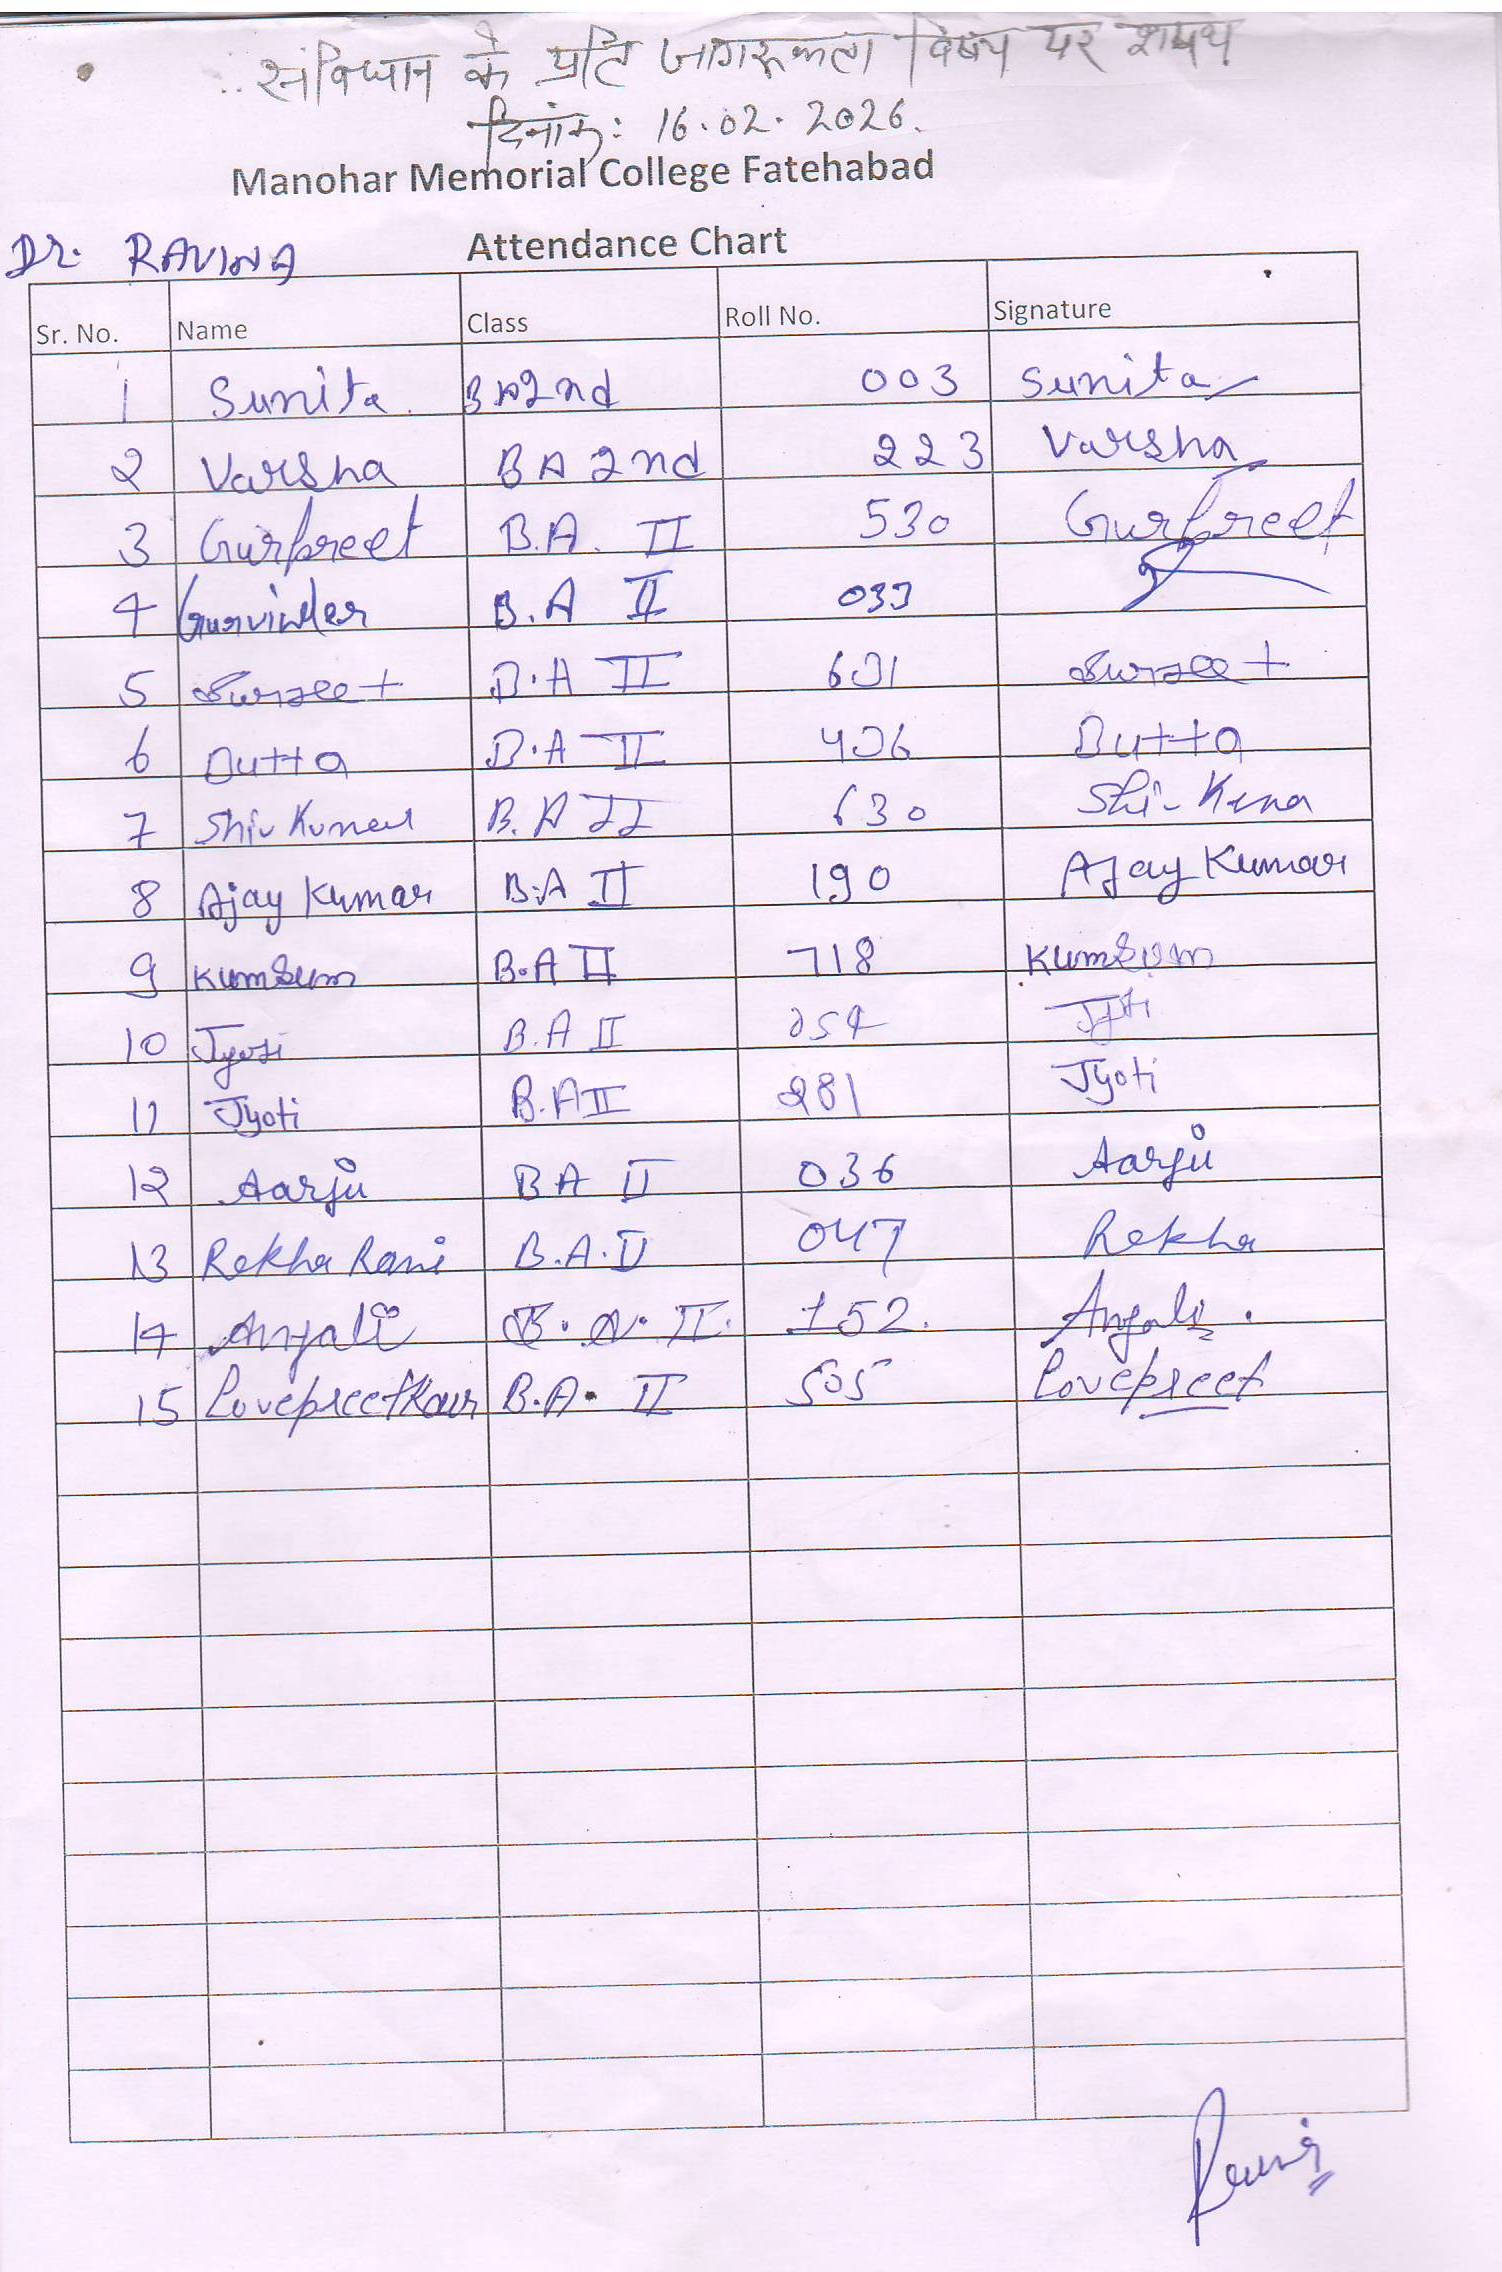 संविधान के प्रति जागरूकता विषय पर शपथ
दिनांक: 16.02.2026.
Manohar Memorial College Fatehabad
Dr. RAVINA Attendance Chart
Sr. No. Name Class Roll No. Signature
1 Sunita BA2nd 003 Sunita
2 Varsha BA 2nd 223 Varsha
3 Gurpreet B.A. II 530 Gurpreet
4 Gurvinder B.A II 033
5 Surjeet B.A II 631 Surjeet
6 Dutta B.A II 436 Dutta
7 Shiv Kumar B.A II 630
8 Ajay Kumar B.A II 190 Ajay Kumar
9 Kumsum B.A II 718 Kumsum
10 Jyoti B.A II 054 Jyoti
11 Jyoti B.A II 281 Jyoti
12 Aarju BA II 036 Aarju
13 Rekha Rani B.A.II 047 Rekha
14 Anjali B.A.II. 152. Anjali.
15 Lovepreet Kaur B.A. II 505 Lovepreet